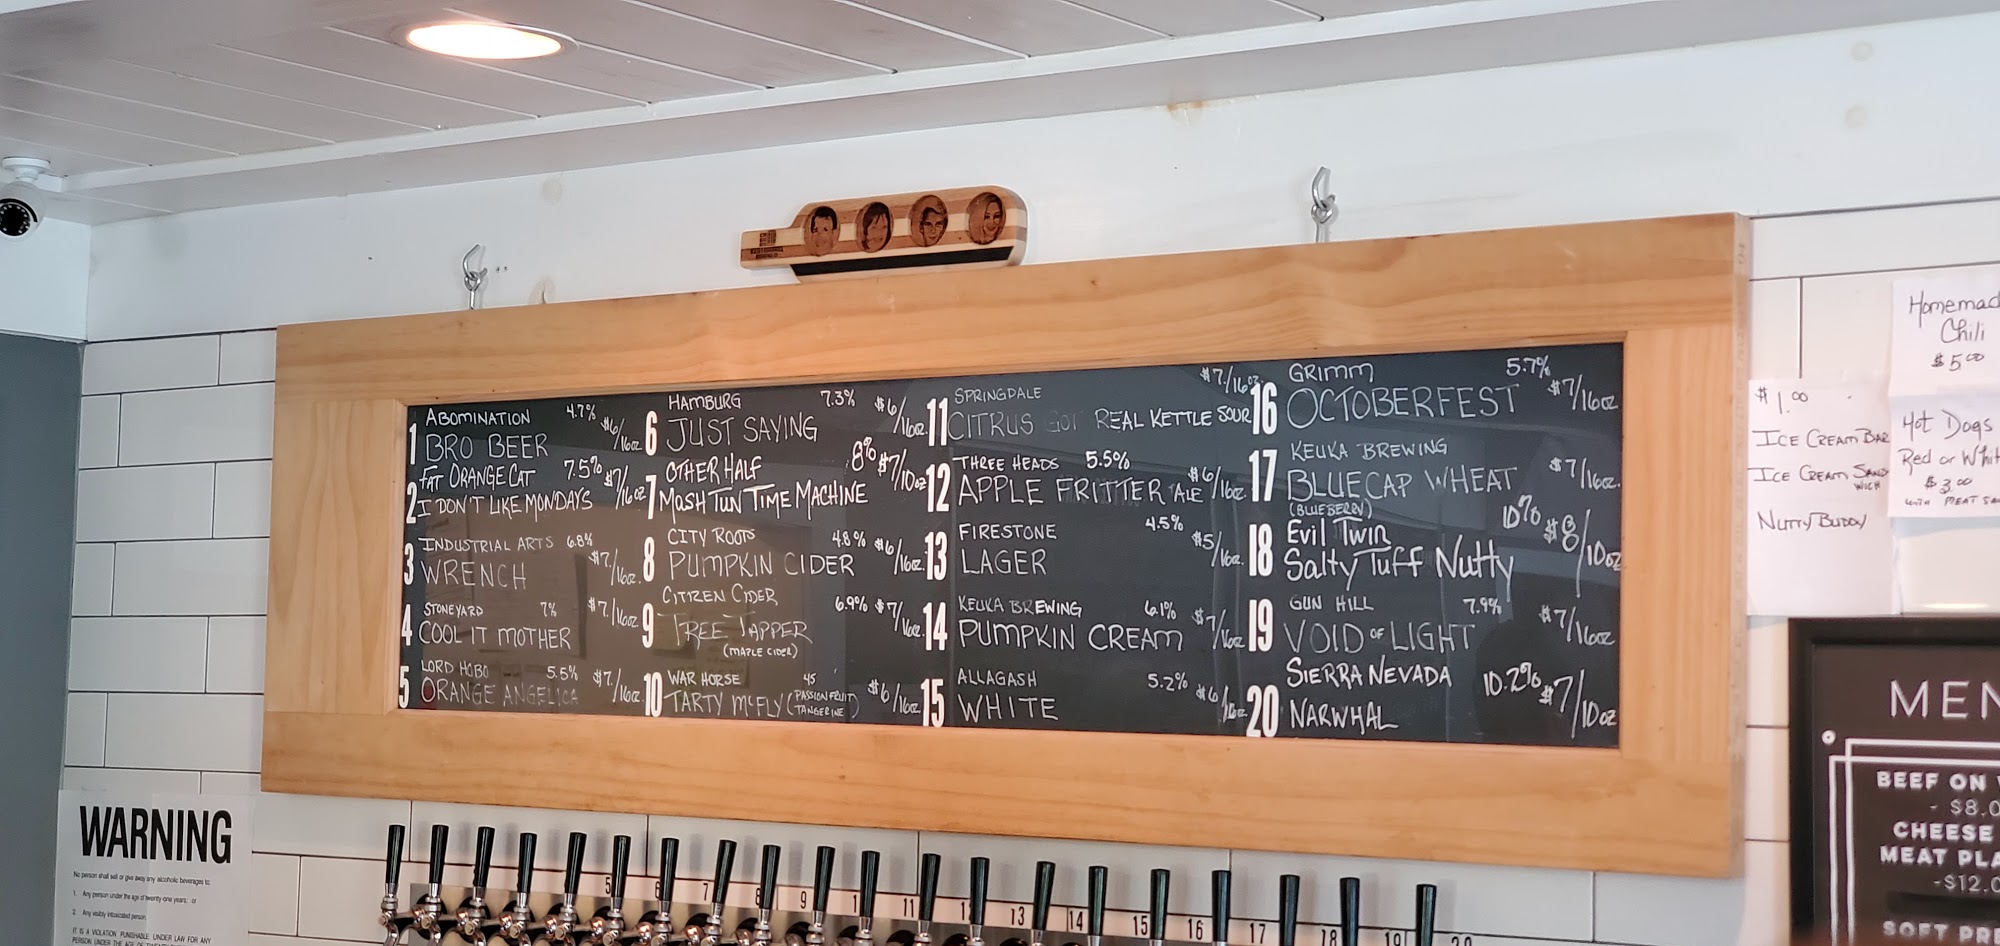 1 ABOMINATION 4.7% $6/16oz.
BRO BEER
2 FAT ORANGE CAT 7.5% $7/16oz
I DON'T LIKE MONDAYS
3 INDUSTRIAL ARTS 6.8% $7./16oz.
WRENCH
4 STONEYARD 7% $7./16oz
COOL IT MOTHER
5 LORD HOBO 5.5% $7./16oz
ORANGE ANGELICA
6 HAMBURG 7.3% $6/16oz.
JUST SAYING
7 OTHER HALF 8% $7/10oz
MASH TUN TIME MACHINE
8 CITY ROOTS 4.8% $6/16oz.
PUMPKIN CIDER
9 CITIZEN CIDER 6.9% $7/16oz.
TREE TAPPER
(MAPLE CIDER)
10 WAR HORSE 45 $6/16oz.
TARTY McFLY (PASSION FRUIT/
TANGERINE)
11 SPRINGDALE $7./16oz.
CITRUS GOT REAL KETTLE SOUR
12 THREE HEADS 5.5% $6/16oz.
APPLE FRITTER ALE
13 FIRESTONE 4.5% $5/16oz.
LAGER
14 KEUKA BREWING 6.1% $7/16oz
PUMPKIN CREAM
15 ALLAGASH 5.2% $6/16oz.
WHITE
16 GRIMM 5.7% $7/16oz
OCTOBERFEST
17 KEUKA BREWING $7/16oz.
BLUECAP WHEAT
(BLUEBERRY)
18 Evil Twin 10% $8/10oz
Salty Tuff Nutty
19 GUN HILL 7.9% $7/16oz
VOID OF LIGHT
20 SIERRA NEVADA 10.2% $7/10oz
NARWHAL
Homemad
Chili
$5.00
$1.00
ICE CREAM BAR
ICE CREAM SAND
WICH
NUTTY BUDDY
Hot Dogs
Red or Whit
$3.00
with MEAT SA
MEN
BEEF ON
- $8.0
CHEESE
MEAT PLA
-$12.0
SOFT PRE
WARNING
No person shall sell or give away any alcoholic beverages to:
1. Any person under the age of twenty-one years; or
2. Any visibly intoxicated person.
IT IS A VIOLATION PUNISHABLE UNDER LAW FOR ANY
PERSON UNDER THE AGE OF TWENTY
5 6 7 8 9 11 13 14 15 16 17 18 19 20